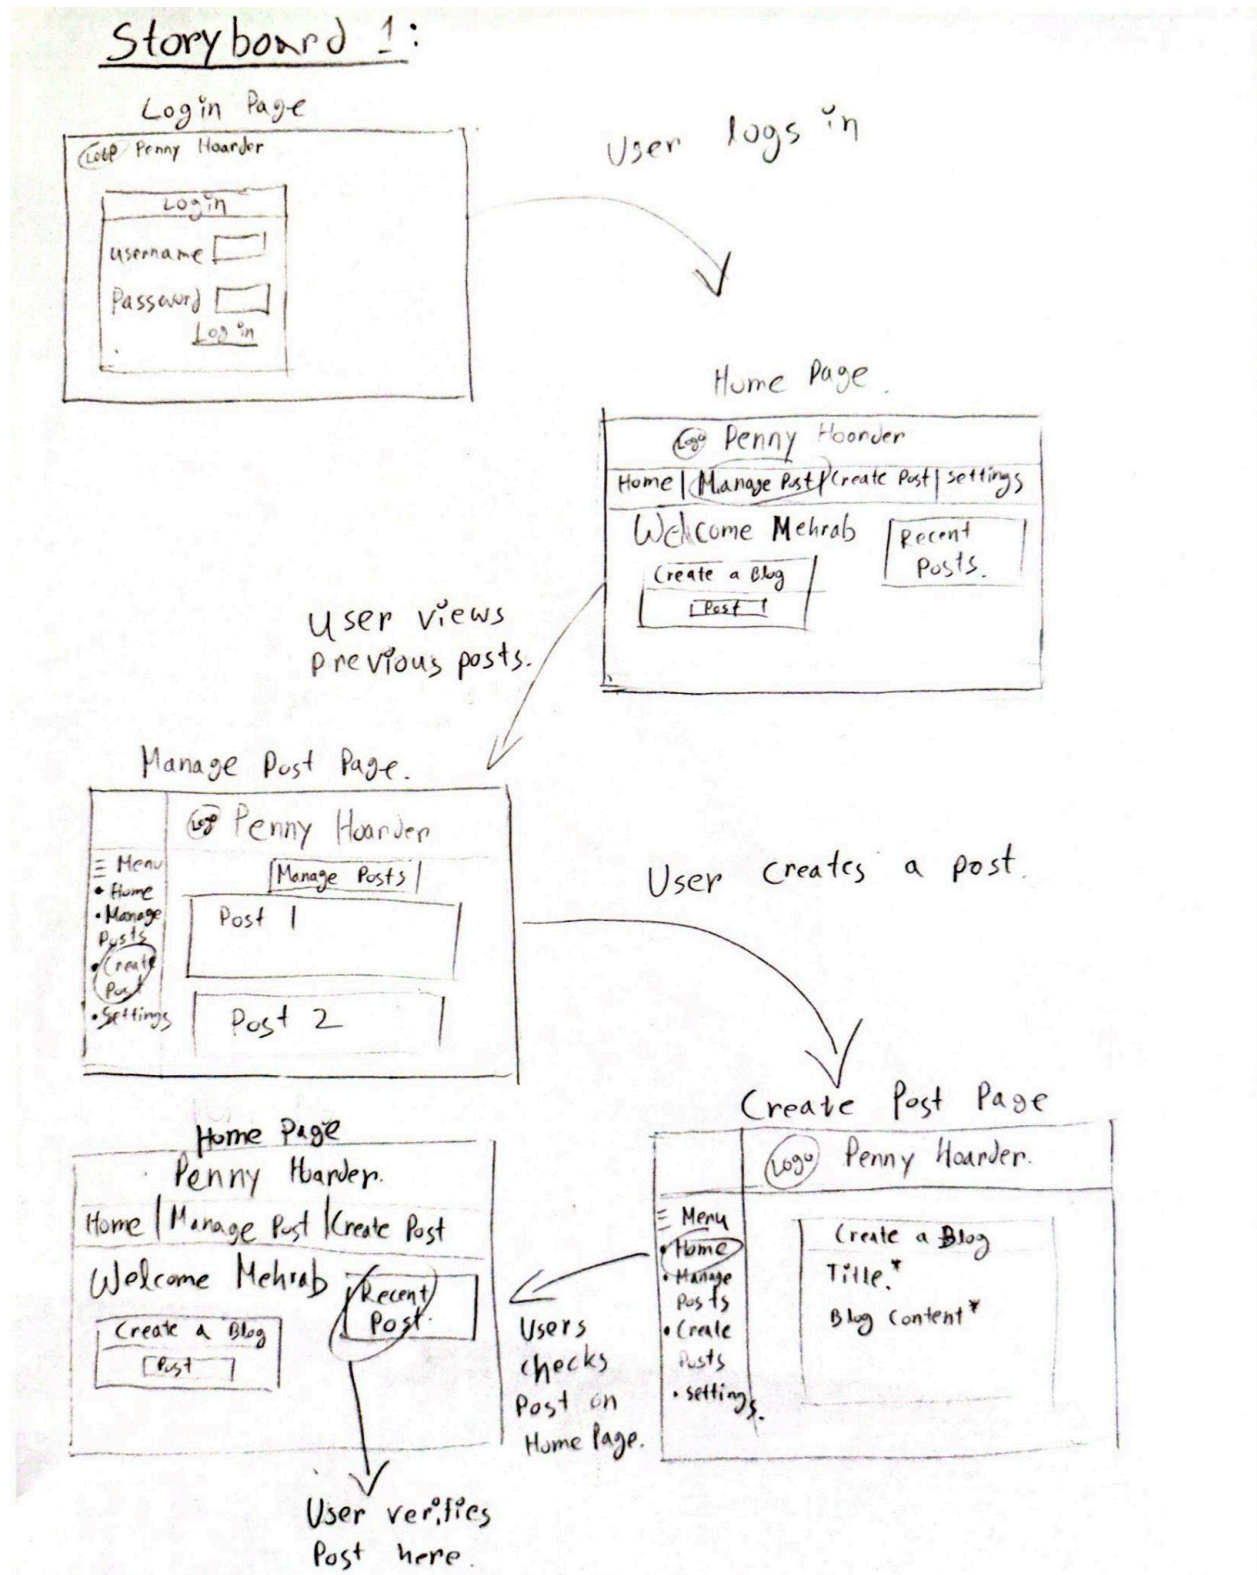 Storyboard 1:
Login Page
Logo Penny Hoarder
Login
username
Password
Log in
User logs in
Home Page.
Logo Penny Hoarder
Home | Manage Post | Create Post | settings
Welcome Mehrab
Recent
Posts.
Create a Blog
Post
User views
previous posts.
Manage Post Page.
Logo Penny Hoarder
Menu
• Home
• Manage
Posts
• Create
Post
• Settings
Manage Posts
Post 1
Post 2
User creates a post.
Create Post Page
Logo Penny Hoarder.
Menu
• Home
• Manage
Posts
• Create
Posts
• settings.
Create a Blog
Title.*
Blog Content*
Users
checks
Post on
Home Page.
Home Page
Penny Hoarder.
Home | Manage Post | Create Post
Welcome Mehrab
Recent
Post.
Create a Blog
Post
User verifies
Post here.